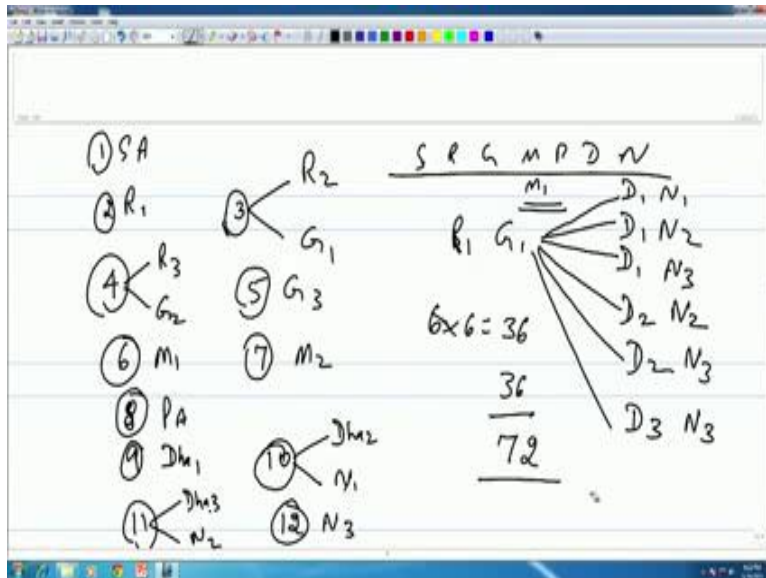 ① SA
② R1
③ R2
G1
④ R3
G2
⑤ G3
⑥ M1
⑦ M2
⑧ PA
⑨ Dha1
⑩ Dha2
N1
⑪ Dha3
N2
⑫ N3
S R G M P D N
M1
R1 G1
D1 N1
D1 N2
D1 N3
D2 N2
D2 N3
D3 N3
6x6=36
36
72